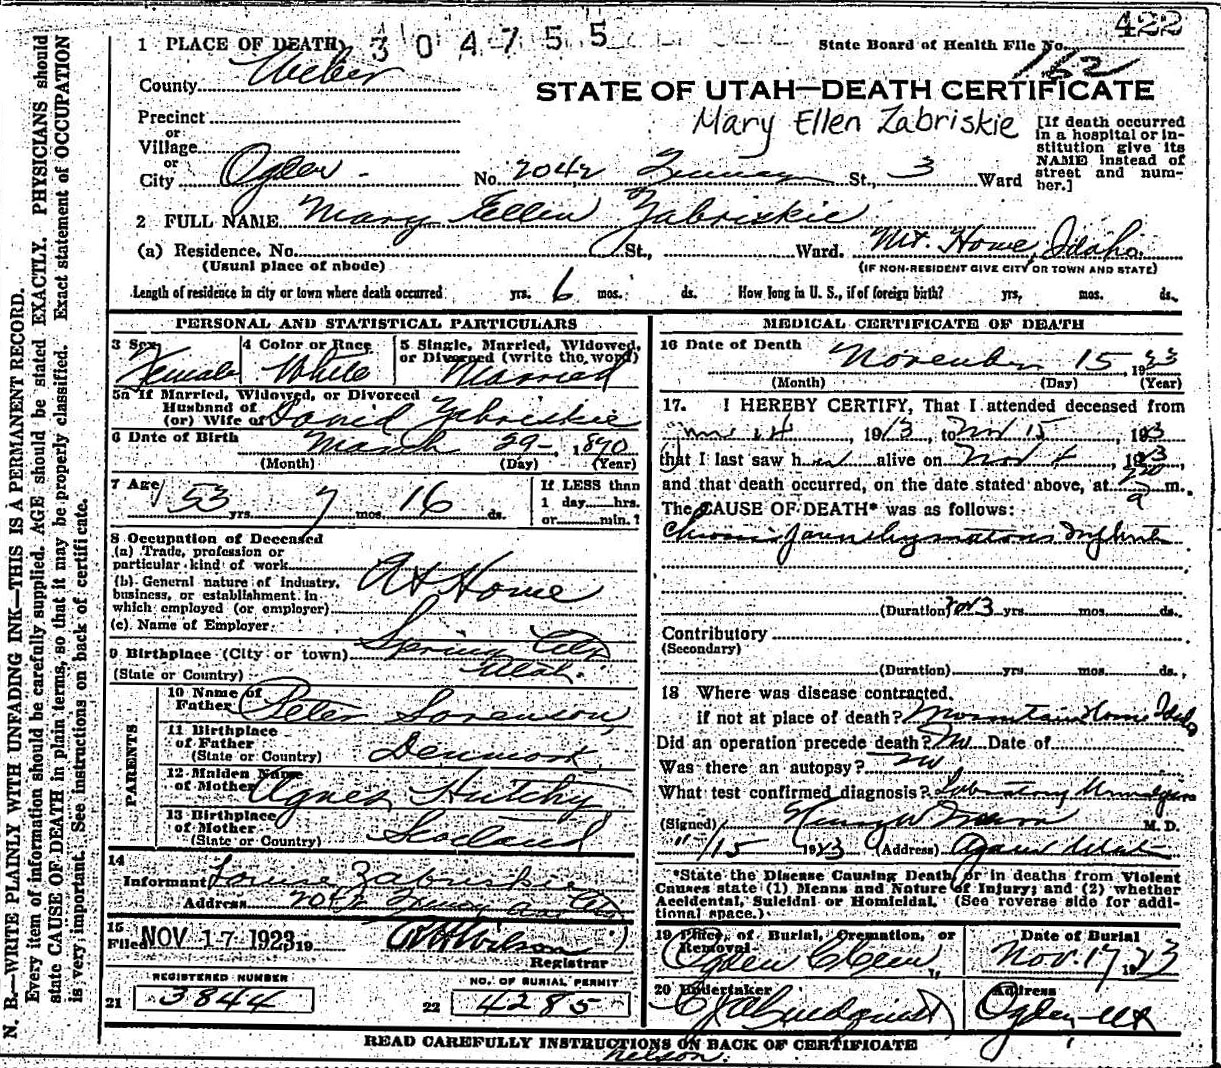 422
1 PLACE OF DEATH 304755
State Board of Health File No. 162
County Weber
STATE OF UTAH—DEATH CERTIFICATE
Mary Ellen Zabriskie
Precinct
or
Village
or
City Ogden No. 2042 St., 3 Ward
[If death occurred in a hospital or institution give its NAME instead of street and number.]
2 FULL NAME Mary Ellen Zabriskie
(a) Residence. No. St., Ward. Mt. Home, Idaho
(Usual place of abode) (IF NON-RESIDENT GIVE CITY OR TOWN AND STATE)
Length of residence in city or town where death occurred yrs. 6 mos. ds. How long in U. S., if of foreign birth? yrs. mos. ds.
PERSONAL AND STATISTICAL PARTICULARS
3 Sex Female
4 Color or Race White
5 Single, Married, Widowed, or Divorced (write the word) Married
5a If Married, Widowed, or Divorced
Husband of
(or) Wife of David Zabriskie
6 Date of Birth March 29 - 1870
(Month) (Day) (Year)
7 Age 53 yrs. 7 mos. 16 ds.
If LESS than
1 day hrs.
or min.?
8 Occupation of Deceased
(a) Trade, profession or
particular kind of work
At Home
(b) General nature of industry,
business, or establishment in
which employed (or employer)
(c) Name of Employer
9 Birthplace (City or town) Spring City
(State or Country) Utah.
PARENTS
10 Name of Father Peter Sorenson
11 Birthplace of Father Denmark
(State or Country)
12 Maiden Name of Mother Agnes Hutchy
13 Birthplace of Mother Scotland
(State or Country)
14
Informant Louise Zabriskie
Address 2042 Ave City
15
Filed NOV 17 1923 19
R H Wilson
Registrar
REGISTERED NUMBER
21 3844
NO. OF BURIAL PERMIT
22 4285
MEDICAL CERTIFICATE OF DEATH
16 Date of Death November 15, 1923
(Month) (Day) (Year)
17. I HEREBY CERTIFY, That I attended deceased from
, 19 , to Nov 15 , 19
that I last saw h alive on Nov , 19
and that death occurred, on the date stated above, at m.
The CAUSE OF DEATH* was as follows:
Chronic
(Duration) 2 or 3 yrs. mos. ds.
Contributory
(Secondary)
(Duration) yrs. mos. ds.
18 Where was disease contracted,
if not at place of death? Mountain Home Idaho
Did an operation precede death? No Date of
Was there an autopsy? No
What test confirmed diagnosis? Laboratory
(Signed) M. D.
11/15 1923 (Address) Ogden Utah
*State the Disease Causing Death, or in deaths from Violent
Causes state (1) Means and Nature of Injury; and (2) whether
Accidental, Suicidal or Homicidal. (See reverse side for additional space.)
19 Place of Burial, Cremation, or Removal
Ogden Cem
Date of Burial
Nov. 17 1923
20 Undertaker
Lindquist
Address
Ogden Ut
READ CAREFULLY INSTRUCTIONS ON BACK OF CERTIFICATE
Nelson.
N. B.—WRITE PLAINLY WITH UNFADING INK—THIS IS A PERMANENT RECORD.
Every item of information should be carefully supplied. AGE should be stated EXACTLY. PHYSICIANS should
state CAUSE OF DEATH in plain terms, so that it may be properly classified. Exact statement of OCCUPATION
is very important. See instructions on back of certificate.